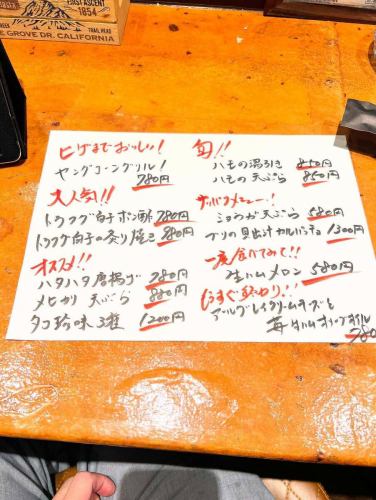 FIRST ASCENT
1854
GROVE DR. CALIFORNIA
ヒゲまでおいしい!
ヤングコーングリル! 780円
大人気!!
トラフグ白子ポン酢 780円
トラフグ白子の炙り焼き 880円
オススメ!!
ハタハタ唐揚げ 780円
メヒカリ 天ぷら 880円
タコ珍味3種 1200円
旬!!
ハモの湯引き 850円
ハモの天ぷら 850円
サッパリメニュー!
ミョウガ天ぷら 580円
ブリの貝出汁カルパッチョ 1300円
一度食べてみて!!
生ハムメロン 580円
もうすぐ終わり!!
アールグレイクリームチーズと
苺 生ハム オリーブオイル
780